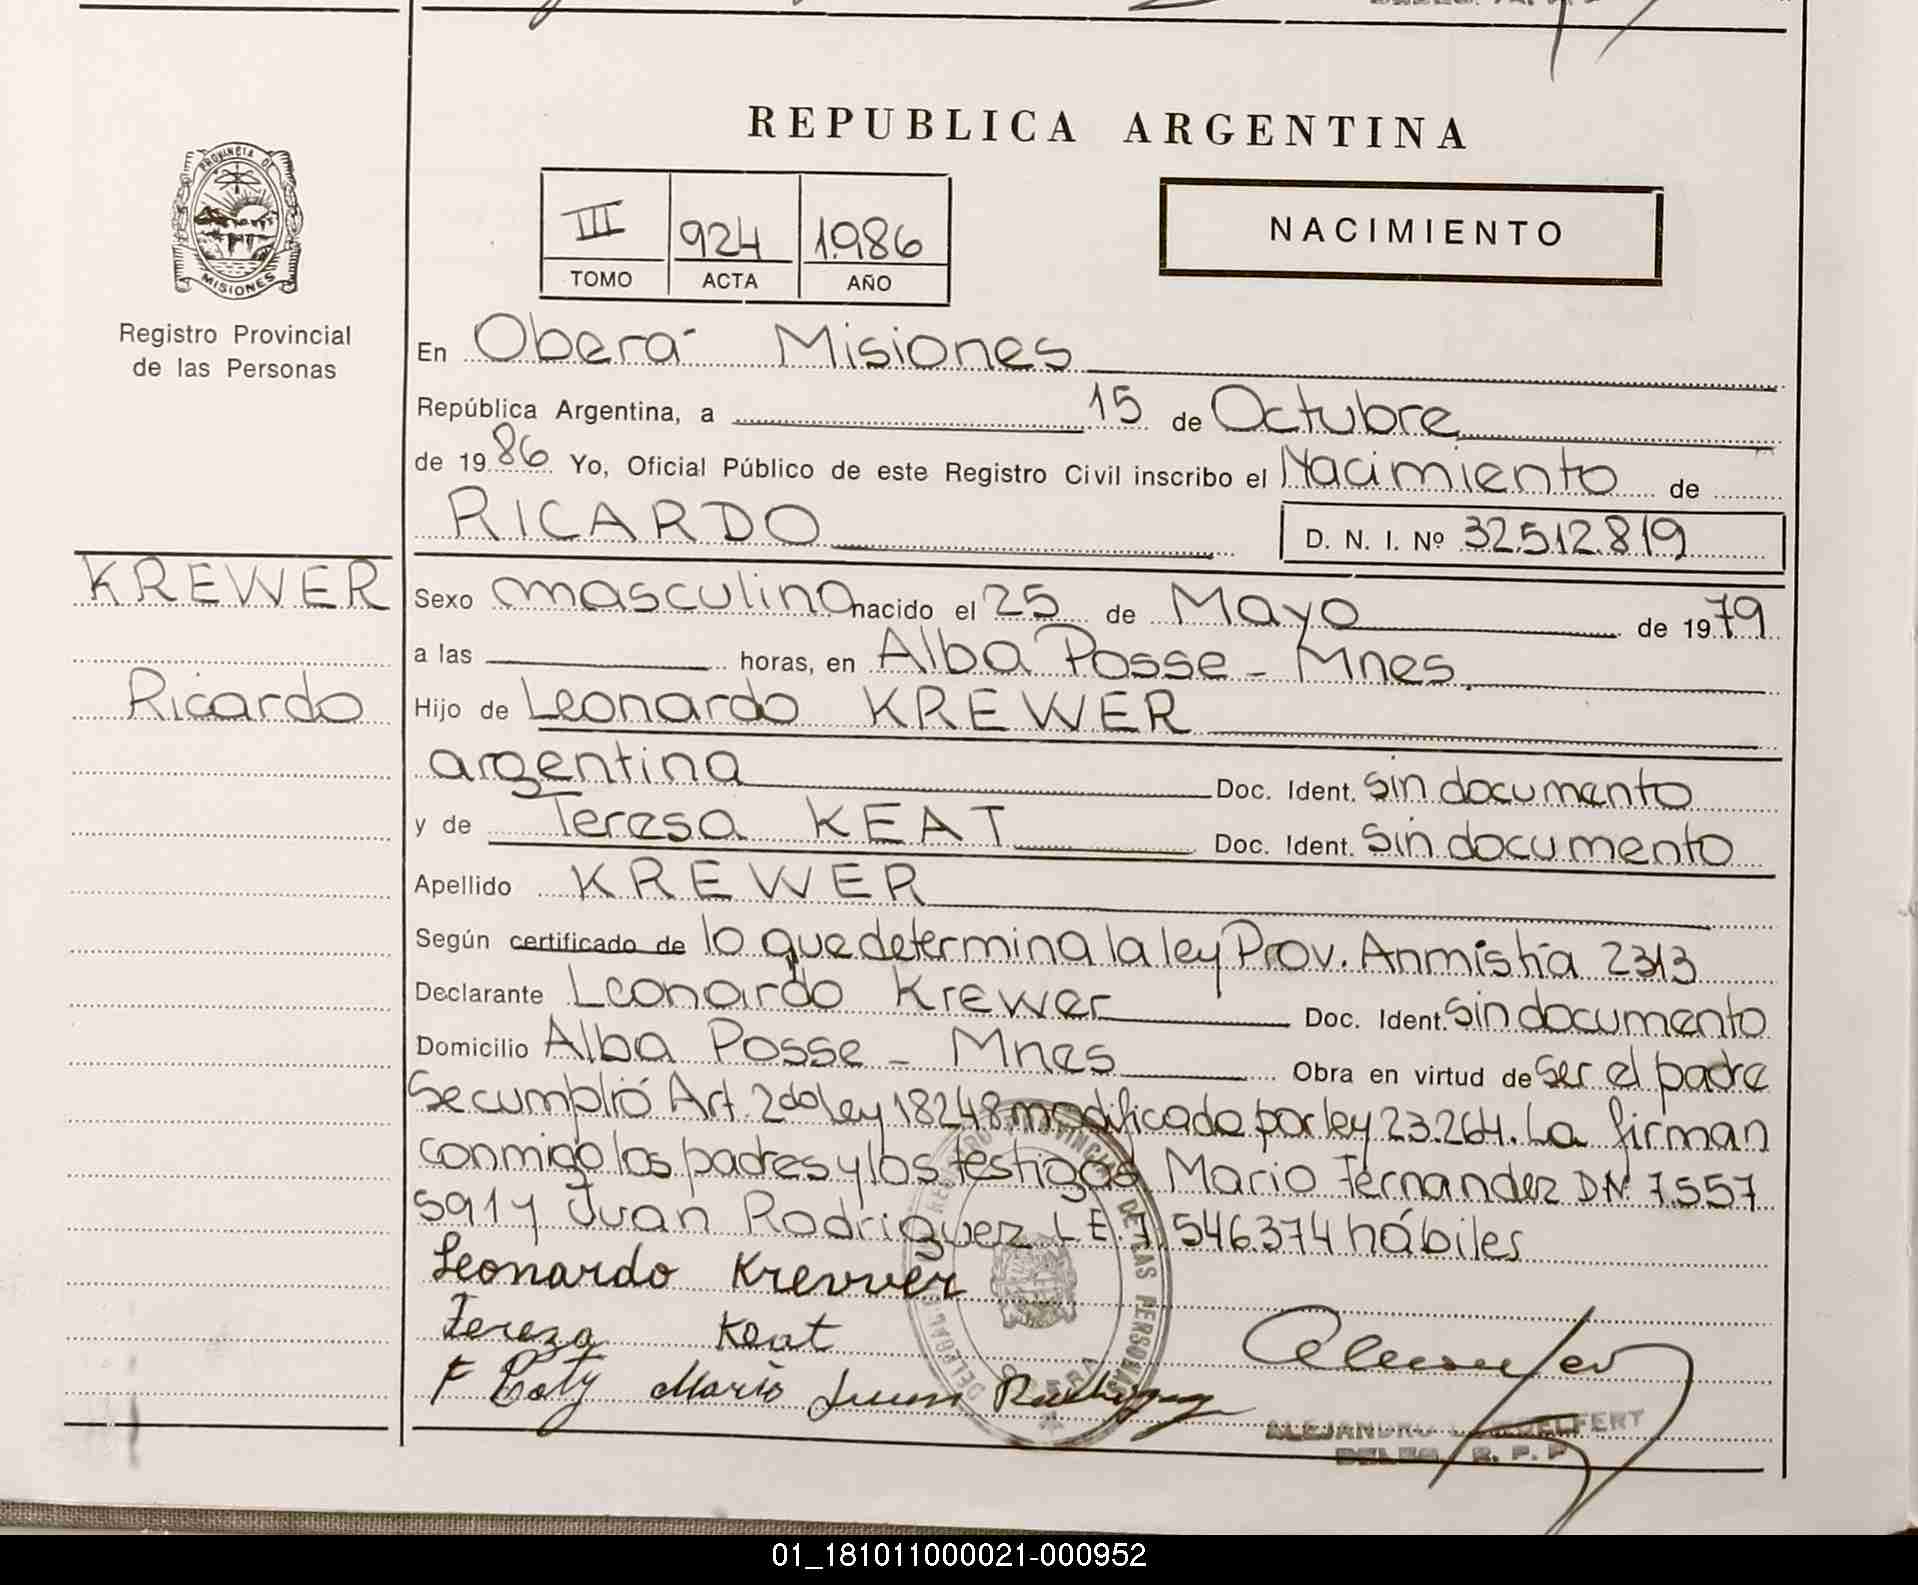 REPUBLICA ARGENTINA
PROVINCIA DE
MISIONES
Registro Provincial
de las Personas
III 924 1.986
TOMO ACTA AÑO
NACIMIENTO
En Oberá Misiones
República Argentina, a 15 de Octubre
de 1986 Yo, Oficial Público de este Registro Civil inscribo el Nacimiento de
RICARDO
D. N. I. Nº 32.512.819
KREWER
Ricardo
Sexo masculino nacido el 25 de Mayo de 1979
a las horas, en Alba Posse - Mnes.
Hijo de Leonardo KREWER
argentina Doc. Ident. sin documento
y de Teresa KEAT Doc. Ident. sin documento
Apellido KREWER
Según certificado de lo que determina la ley Prov. Anmistía 2313
Declarante Leonardo Krewer Doc. Ident. sin documento
Domicilio Alba Posse - Mnes Obra en virtud de ser el padre
Se cumplió Art. 2do ley 18248 modificado por ley 23.264. La firman
conmigo los padres y los testigos Mario Fernandez DNI 7.557
591 y Juan Rodriguez L E. 7.546.374 hábiles
Leonardo Krewer
Tereza Keat
Mario Juan
REGISTRO PROVINCIAL DE LAS PERSONAS
OBERA
ALEJANDRO
DELEG. R. P. P.
01_181011000021-000952